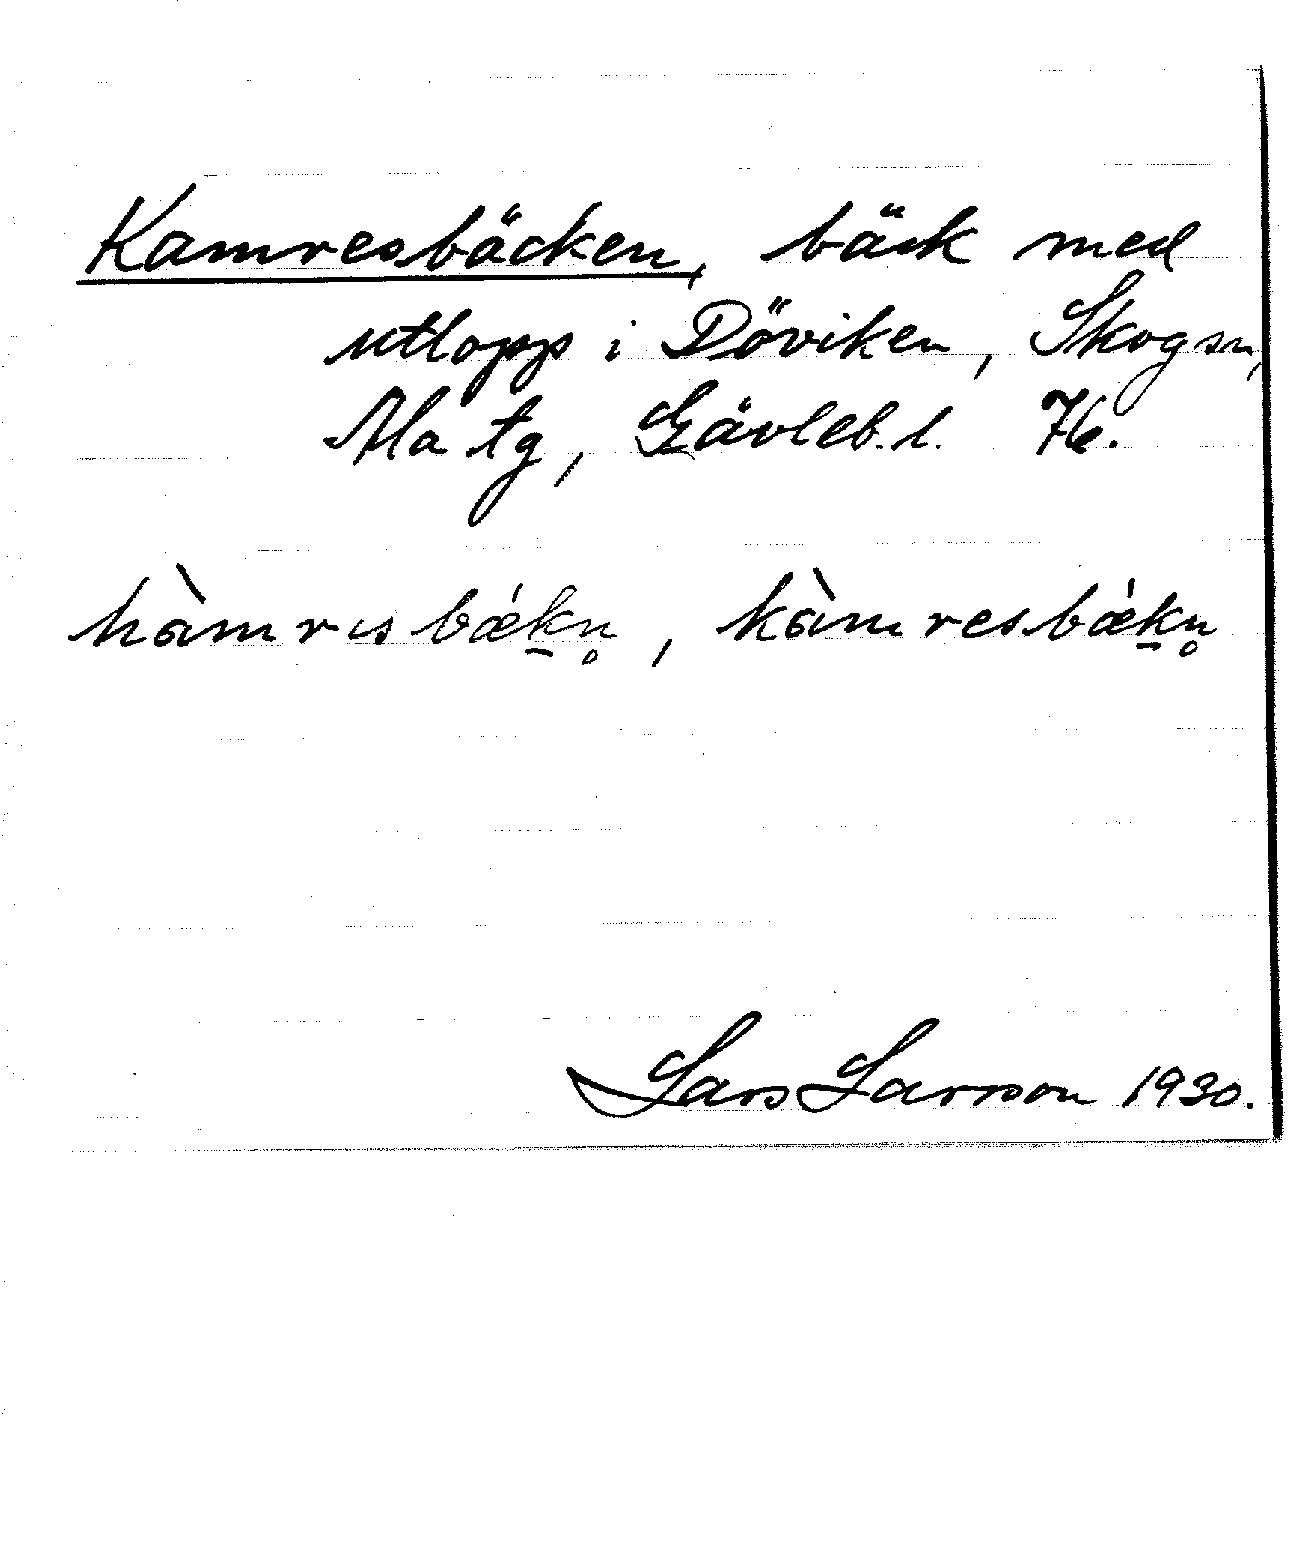 Kamresbäcken, bäck med
utlopp i Döviken, Skogsn,
Ala tg, Gävleb. l. 76.
kàmrɩsbǽk̠n̥, kàmresbǽk̠n̥
Lars Larsson 1930.